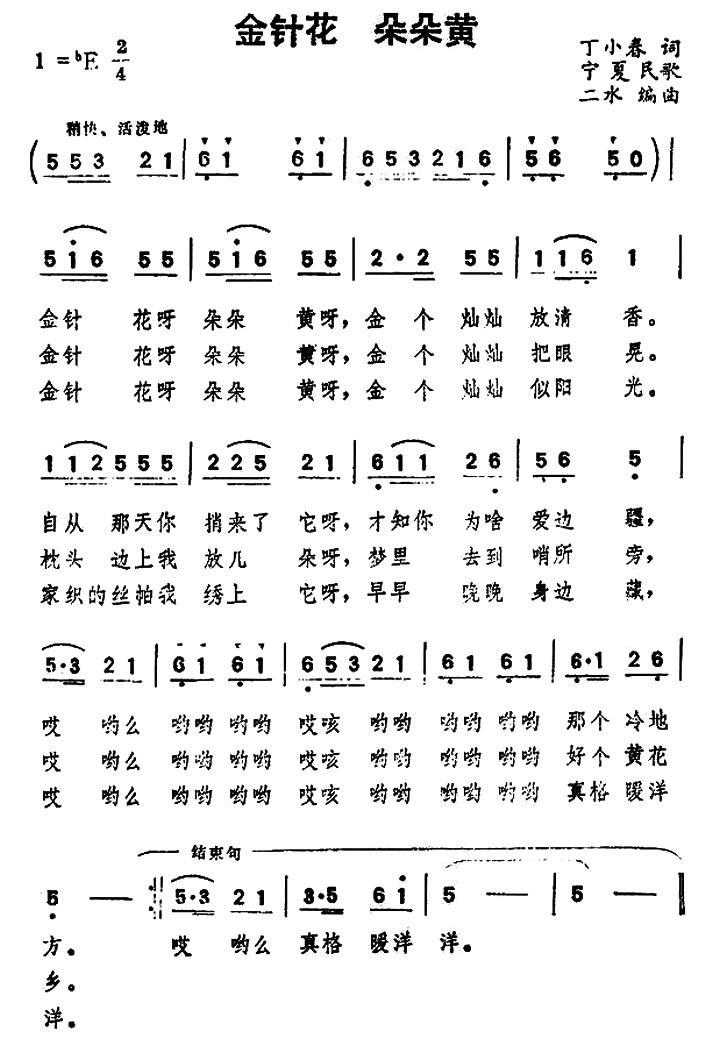 金针花 朵朵黄
1 = ♭E 2/4
丁小春 词
宁夏民歌
二水 编曲
稍快、活泼地
( 5 5 3 2 1 | 6 1 6 1 | 6 5 3 2 1 6 | 5 6 5 0 ) |
5 i 6 5 5 | 5 i 6 5 5 | 2 · 2 5 5 | 1 1 6 1 |
金针 花呀 朵朵 黄呀，金 个 灿灿 放清 香。
金针 花呀 朵朵 黄呀，金 个 灿灿 把眼 晃。
金针 花呀 朵朵 黄呀，金 个 灿灿 似阳 光。
1 1 2 5 5 5 5 | 2 2 5 2 1 | 6 1 1 2 6 | 5 6 5 |
自从 那天你 捎来了 它呀，才知你 为啥 爱边 疆，
枕头 边上我 放几 朵呀，梦里 去到 哨所 旁，
家织的丝帕我 绣上 它呀，早早 晚晚 身边 藏，
5 · 3 2 1 | 6 1 6 1 | 6 5 3 2 1 | 6 1 6 1 | 6 · 1 2 6 |
哎 哟么 哟哟 哟哟 哎咳 哟哟 哟哟 哟哟 那个 冷地
哎 哟么 哟哟 哟哟 哎咳 哟哟 哟哟 哟哟 好个 黄花
哎 哟么 哟哟 哟哟 哎咳 哟哟 哟哟 哟哟 真格 暖洋
结束句
5 — :‖ 5 · 3 2 1 | 3 · 5 6 i | 5 — | 5 — ‖
方。 哎 哟么 真格 暖洋 洋。
乡。
洋。